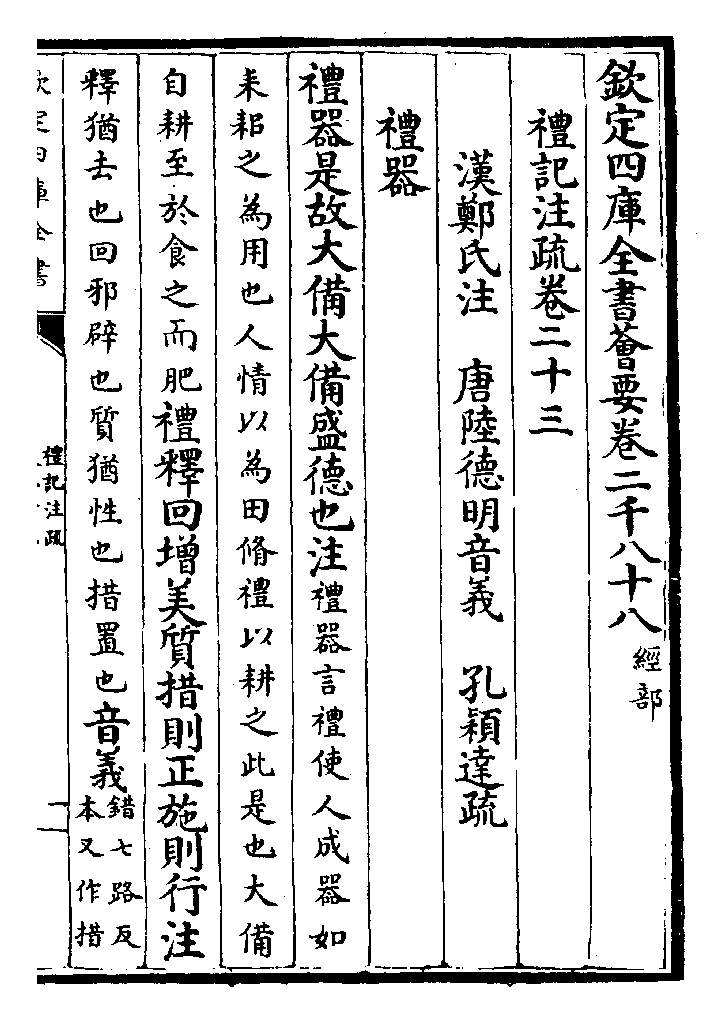 欽定四庫全書薈要卷二千八十八 經部
禮記注疏卷二十三
漢鄭氏注 唐陸德明音義 孔穎達疏
禮器
禮器是故大備大備盛德也注禮器言禮使人成器如
耒耜之為用也人情以為田脩禮以耕之此是也大備
自耕至於食之而肥禮釋回增美質措則正施則行注
釋猶去也回邪辟也質猶性也措置也音義錯七路反
本又作措
欽定四庫全書
禮記注疏
一